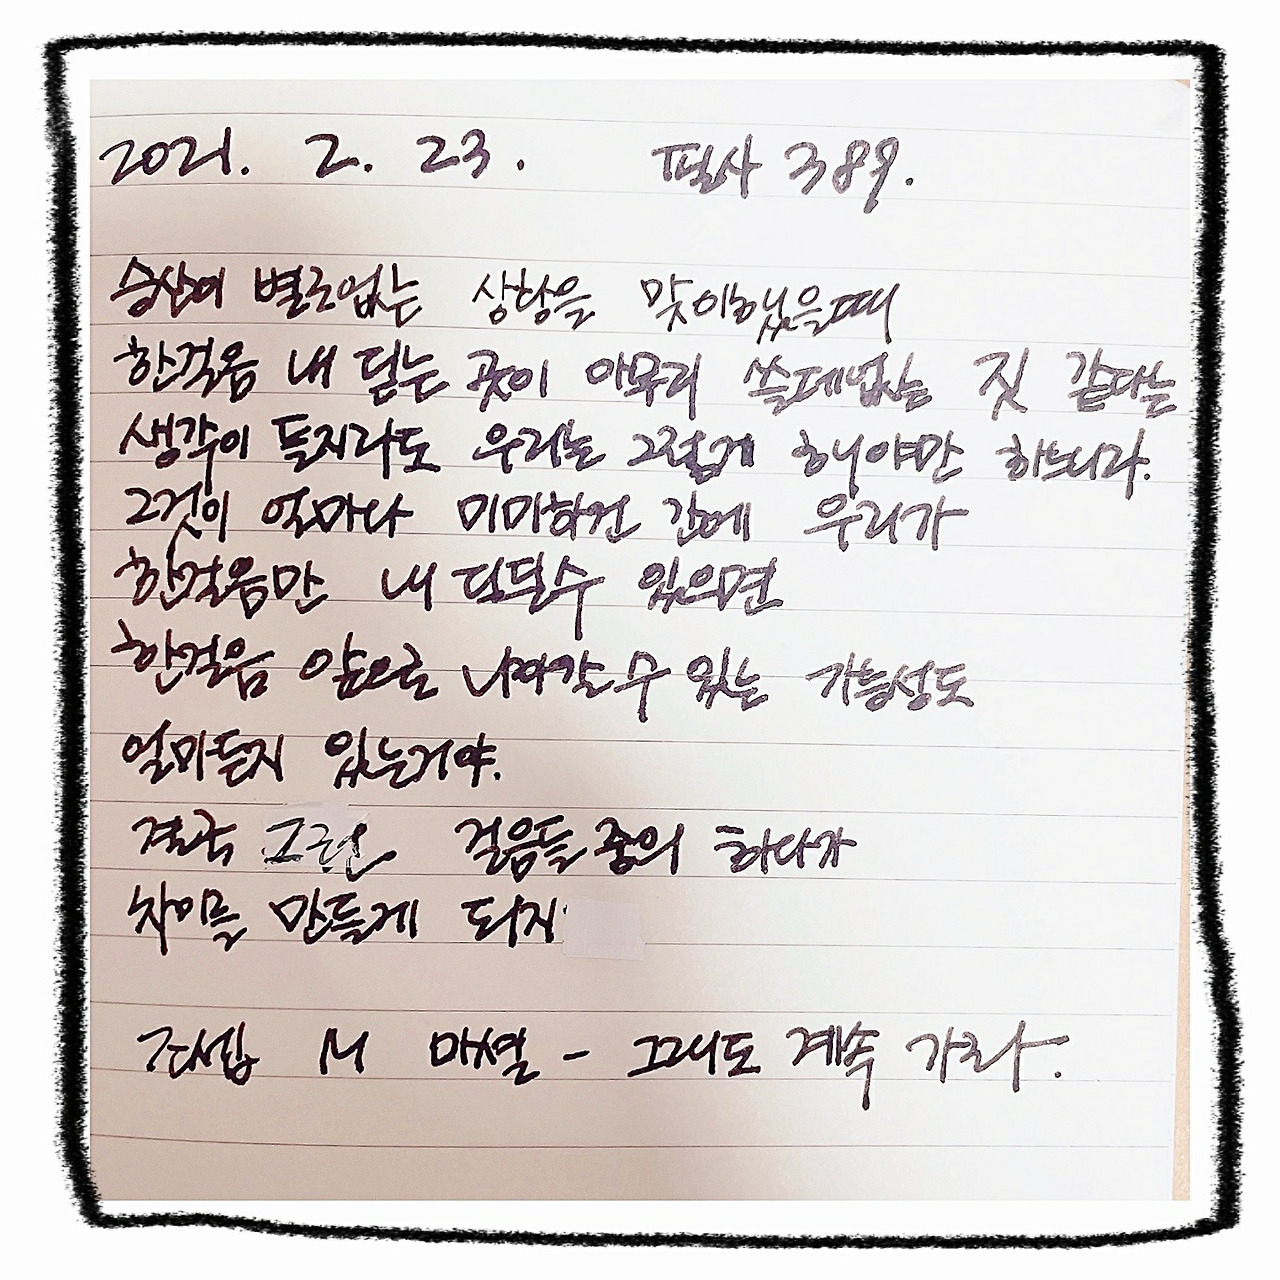 2021. 2. 23. 필사 389.
승산이 별로없는 상황을 맞이했을때
한걸음 내 딛는 것이 아무리 쓸데없는 짓 같다는
생각이 들지라도 우리는 그렇게 해야만 하느니라.
그것이 얼마나 미미하건 간에 우리가
한걸음만 내 딛딜수 있으면
한걸음 앞으로 나아갈 수 있는 가능성도
얼마든지 있는거야.
결국 그런 걸음들 중의 하나가
차이를 만들게 되지
조셉 M 마셜 - 그래도 계속 가라.